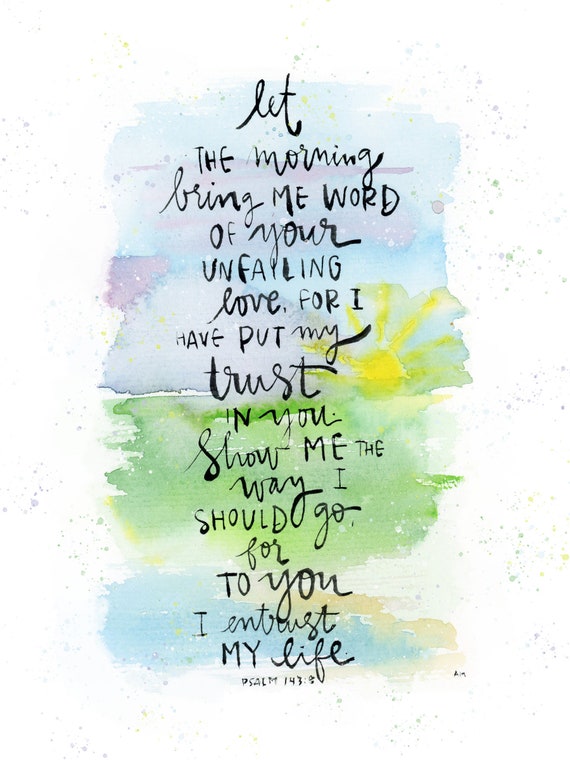 let
THE morning
bring ME WORD
OF your
UNFAILING
love, FOR I
HAVE PUT my
trust
IN you.
Show ME THE
way I
SHOULD go,
for
TO you
I entrust
MY life.
PSALM 143:8
AM